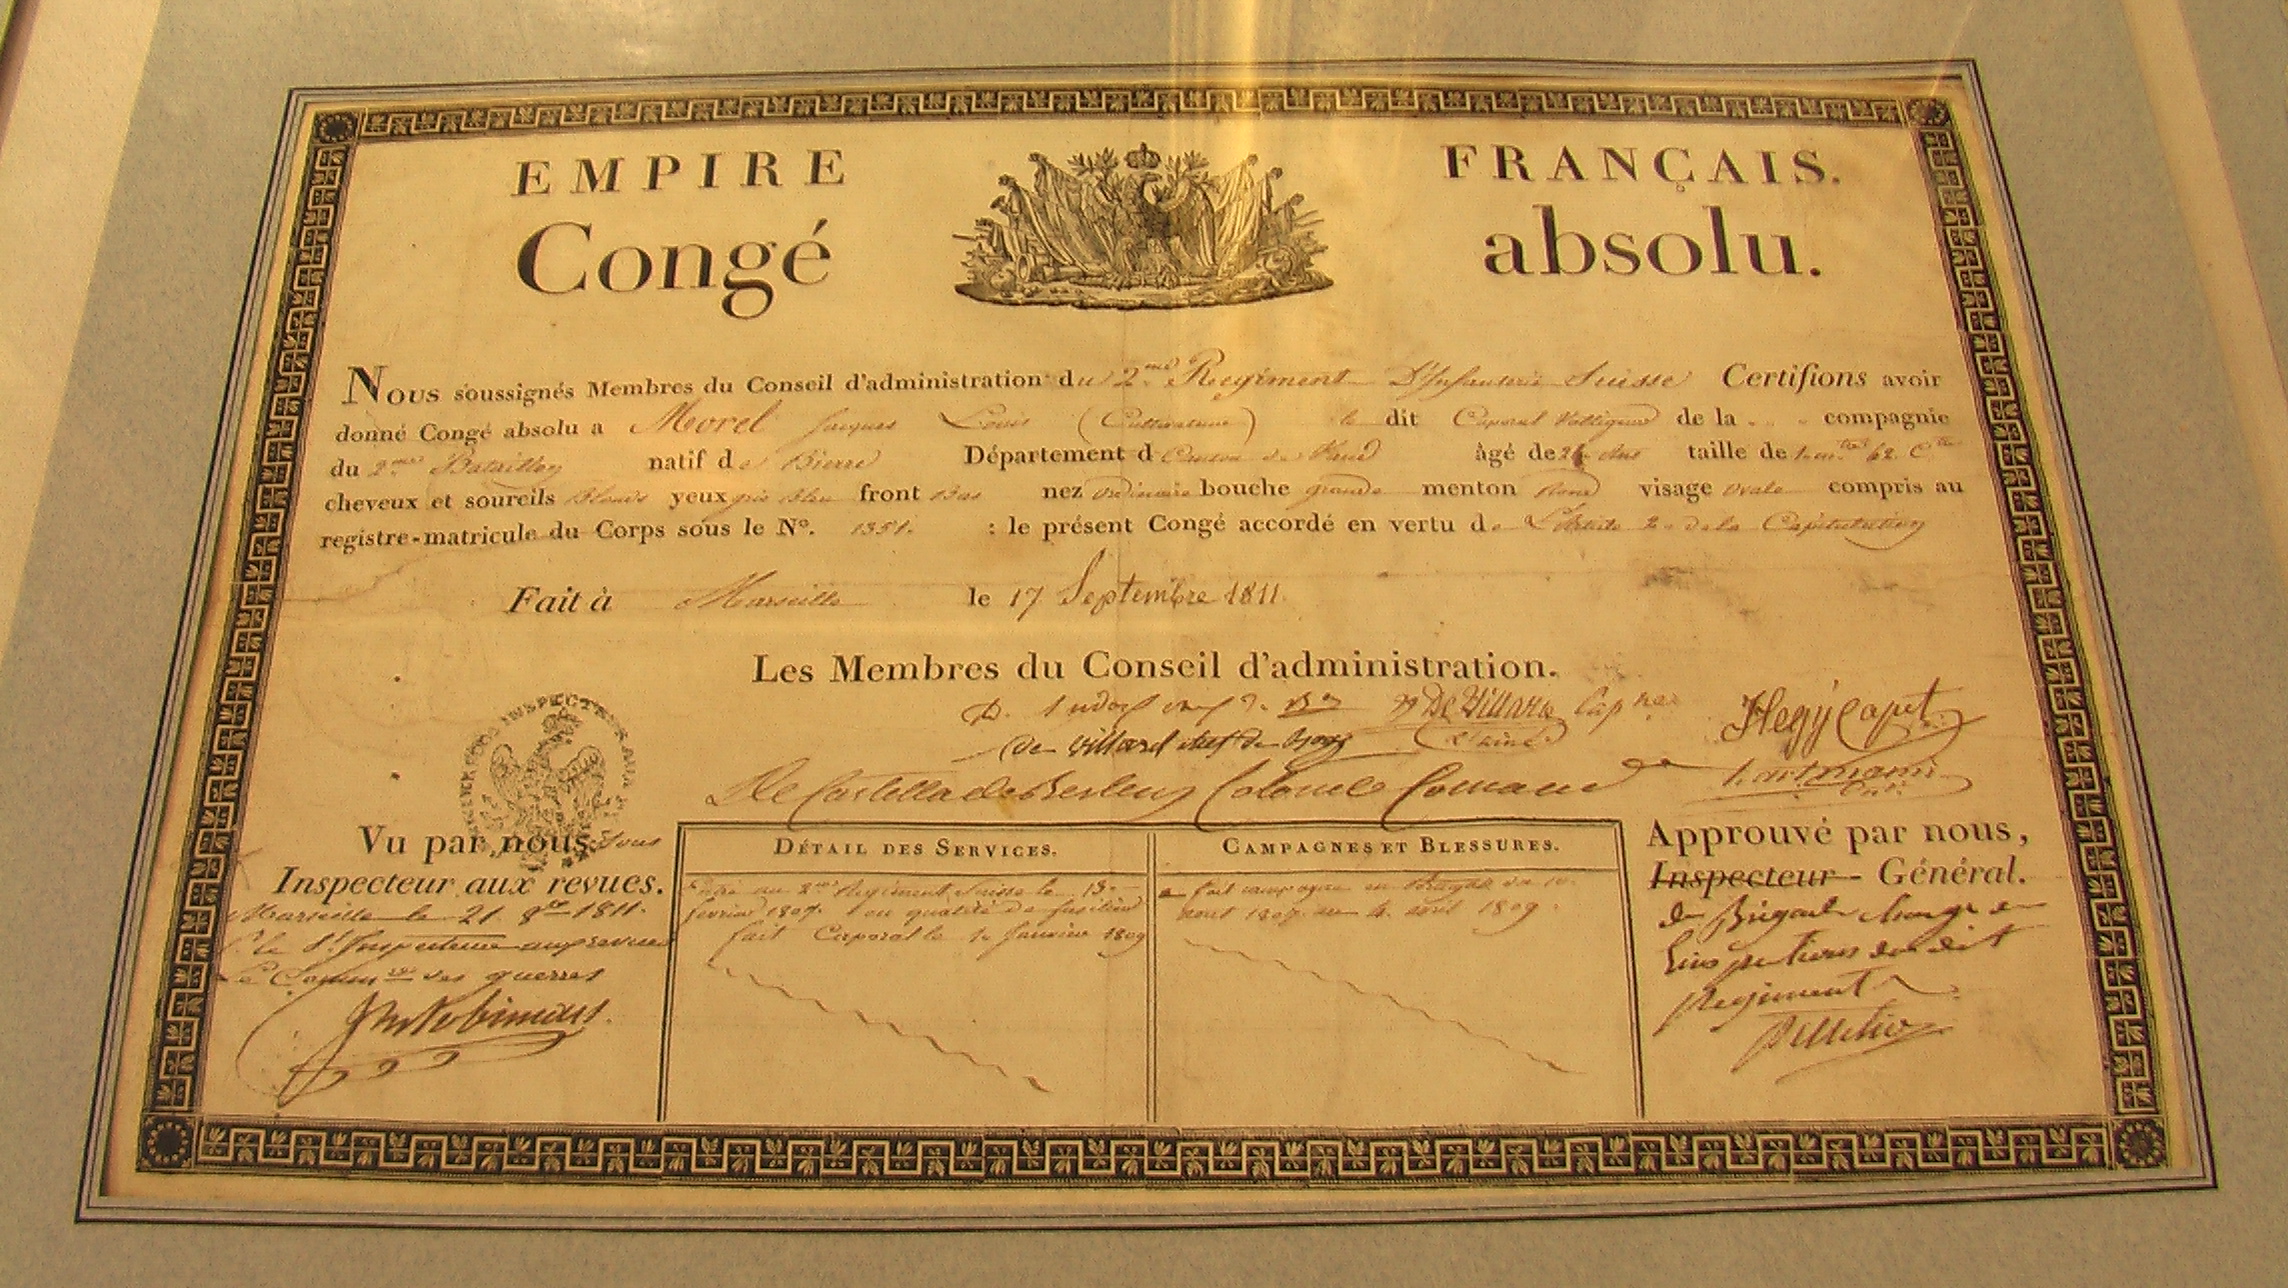 EMPIRE FRANÇAIS.
Congé absolu.
Nous soussignés Membres du Conseil d'administration du 2.me Regiment D'Infanterie Suisse Certifions avoir
donné Congé absolu a Morel Jacques Louis (Cultivateur) le dit Caporal Voltigeur de la compagnie
du 2.me Bataillon natif de Bierre Département d Canton de Vaud âgé de 26 Ans taille de 1. m.tre 62. C.tre
cheveux et soureils Blonds yeux gris Bleu front Bas nez ordinaire bouche grande menton Rond visage ovale compris au
registre-matricule du Corps sous le N°. 1351. : le présent Congé accordé en vertu de L'Article 2 de la Capitulation
Fait à Marseille le 17 Septembre 1811.
Les Membres du Conseil d'administration.
De Villars Cap ne
Hegÿ Capit
de Villard chef de
l'ainé
De Castella de Berlens Colonel Command
Hartmann
Vu par nous, Sous
Inspecteur aux revues.
Marseille le 21. 8bre 1811.
P.r le S.t Inspecteur aux revues
Le Comm.re des guerres
DÉTAIL DES SERVICES.
Entré au 2.me Regiment Suisse le 15.
fevrier 1807. en qualité de fusilier
fait Caporal le 1. Janvier 1809
CAMPAGNES ET BLESSURES.
a fait campagne en du 10.
aout 1807. au 4. aout 1809.
Approuvé par nous,
Inspecteur - Général.
de Brigade chargé de
L'inspection du dit
Regiment